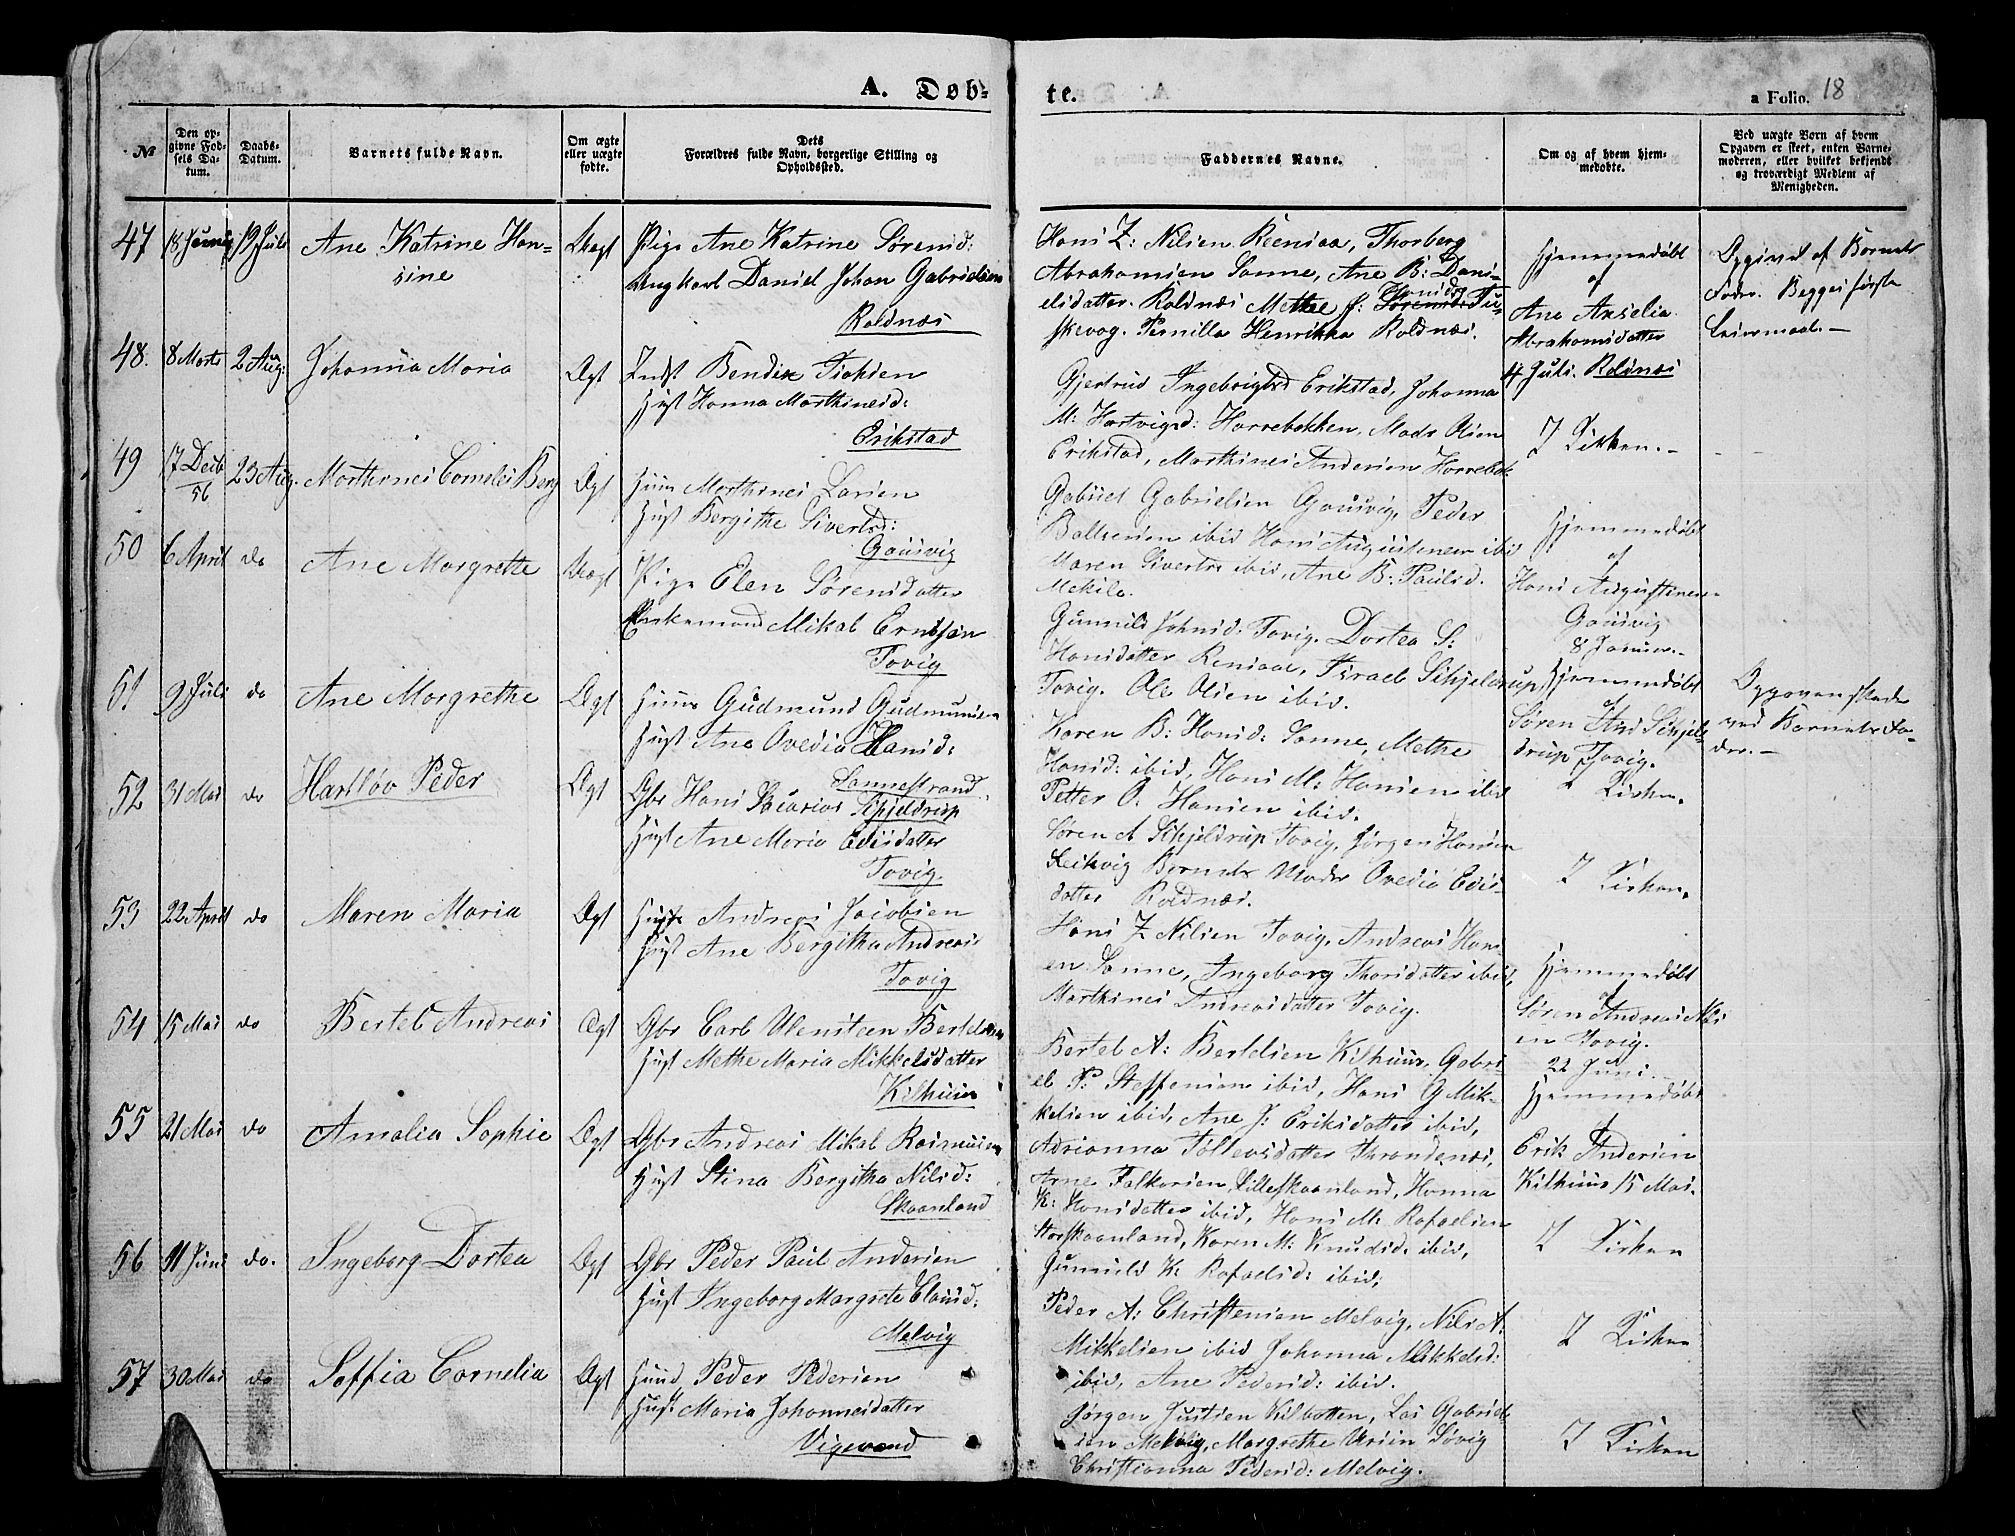 A. Døb-
te.
a Folio. 18
№
Den op-
givne Fød-
sels Da-
tum.
Daabs-
Datum.
Barnets fulde Navn.
Om ægte
eller uægte
fødte.
Dets
Forældres fulde Navn, borgerlige Stilling og
Opholdssted.
Faddernes Navne.
Om og af hvem hjem-
medøbte.
Ved uægte Børn af hvem
Opgaven er skeet, enten Barne-
moderen, eller hvilket bekjendt
og troværdigt Medlem af
Menigheden.
47 18 Juni 19 Juli Ane Katrine Han-
sine
Uægt Pige Ane Katrine Sørensd:
Ungkarl Daniel Johan Gabrielsen
Roldnæs
Hans Z: Nilsen Rensaa, Thorberg
Abrahamsen Sanne, Ane B: Dani-
elsdatter Roldnæs Methe J: Hansd Fu-
skevog. Pernilla Henrikka Roldnæs.
Hjemmedøbt
af
Ane Anselia
Abrahamsdatter
4 Juli. Roldnæs
Opgivet af Barnets
Fader. Begges første
Leiermaal.-
48. 8 Marts 2 Aug: Johanna Maria
Ægt Indst Bendix
Hust Hanna Marthinesd:
Erikstad
Gjertrud Ingebrigtsd Erikstad, Johanna
M: Hartvigsd: Harrebakken, Mads Olsen
Erikstad, Marthines Andersen Harrebak
I Kirken.-
49 17 Decb 56 23 Aug. Marthines Cornelis Berg
Ægt Huus Marthines Larsen
Hust Bergithe Sivertsd:
Gausvig
Gabriel Gabrielsen Gausvig, Peder
Baltsersen ibid Hans Augustinusen ibid
Maren Sivertsd ibid, Ane B: Paulsd.
Mekile.
Hjemmedøbt
af
Hans Augustinusen
Gausvig
8 Januar.-
50 6 April do Ane Margrethe
Uægt Pige Elen Sørensdatter
Enkemand Mikal Erntsen
Tovig
Gunnild Johnsd: Tovig. Dortea S:
Hansdatter Rensaae, Israel Schjelderup
Tovig. Ole Olsen ibid.
Hjemmedøbt
af
Søren And Schjel-
drup Tovig.
Opgaven skede
ved Barnets Fa-
der.-
51 9 Juli do Ane Margrethe
Ægt Huus Gudmund Gudmunsen
Hust Ane Ovedia Hansd:
Sannestrand
Karen B: Hansd: Sanne, Methe
Hansd: ibid, Hans M: Hansen ibid
Petter O: Hansen ibid.
I Kirken.
52 31 Mai do Hartløv Peder
Ægt Gbr Hans Schjeldrup
Hust Ane Maria Edisdatter
Tovig.
Søren A Schjeldrup Tovig, Jørgen Hansen
Leikvig Barnets Moder Ovedia Edis-
datter Roldnæs.
I Kirken.
53 22 April do Maren Maria
Ægt Huus Andreas Jacobsen
Hust Ane Bergitha Andreas
Tovig
Hans Z Nilsen Tovig, Andreas Hans-
en Sanne, Ingeborg Thorsdatter ibid,
Marthines Andreasdatter Tovig.
Hjemmedøbt
af
Søren Andreas Nils
en Tovig.
22 Juni.
54 15 Mai do Bertel Andreas
Ægt Gbr Carl Ulensteen Bertelsen
Hust Methe Maria Mikkelsdatter
Kilhuus
Bertel A: Bertelsen Kilhuus, Gabri-
el P: Steffensen ibid, Hans G Mik-
kelsen ibid, Ane J: Eriksdatter ibid,
Adrianna Tollevsdatter Throndenæs,
Hjemmedøbt
af
Erik Andersen
Kilhuus 15 Mai.
55 21 Mai do Amalia Sophie
Ægt Gbr Andreas Mikal Rasmusen
Hust Stina Bergitha Nilsd:
Skaanland
Arne Falkorsen Lilleskaanland, Hanna
K: Hansdatter ibid, Hans M: Rafaelsen
Storskaanland, Karen M: Knudsd: ibid,
Gunnild K: Rafaelsd: ibid;
I Kirken
56 11 Juni do. Ingeborg Dortea
Ægt Gbr Peder Paul Andersen
Hust Ingeborg Margrete Clausd:
Melvig
Peder A: Christensen Melvig, Nils A:
Mikkelsen ibid Johanna Mikkelsd:
ibid, Ane Pedersd: ibid.
I Kirken
57 30 Mai do Soffia Cornelia
Ægt Huusd Peder Pedersen
Hust Maria Johannesdatter
Vigevand
Jørgen Justsen Kilbotten, Las Gabriel-
sen Melvig, Margrethe Ursin Søvig
Christianna Pedersd: Melvig.
I Kirken